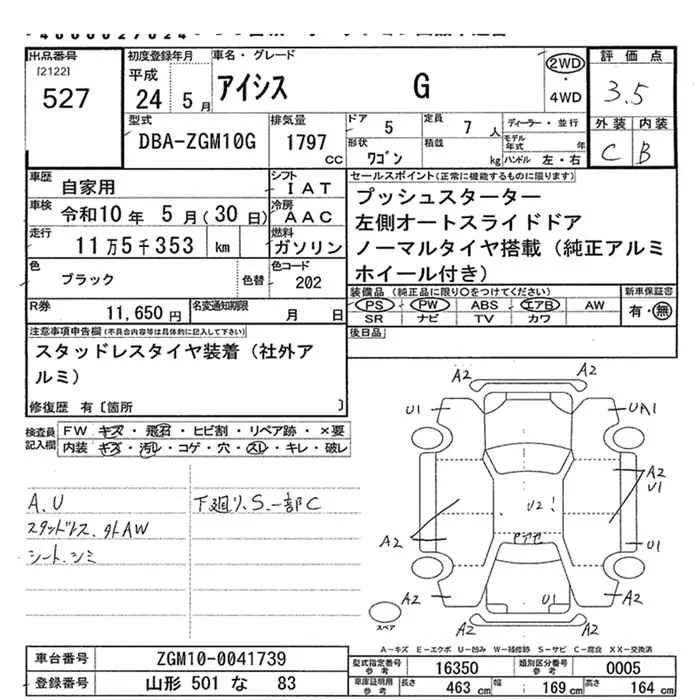 出品番号
[2122]
527
初度登録年月
平成
24 年 5 月
車名・グレード
アイシス G
2WD
・
4WD
評価点
3.5
外装 内装
C B
型式
DBA-ZGM10G
排気量
1797 cc
ドア 5
定員 7 人
形状 ワゴン
積載 kg
ディーラー・並行
モデル年式 年
ハンドル 左・右
車歴 自家用
シフト IAT
車検 令和10年 5月(30日)
冷房 AAC
走行 11万5千353 km
燃料 ガソリン
色 ブラック 色替
色コード 202
R券 11,650円
名変通知期限 月 日
セールスポイント(正常に機能するものに限ります)
プッシュスターター
左側オートスライドドア
ノーマルタイヤ搭載(純正アルミ
ホイール付き)
装備品(純正品に限り○をつけてください)
PS PW ABS エアB AW
SR ナビ TV カワ
新車保証書
有・無
後日品
注意事項申告欄(不具合内容等は具体的に記入して下さい)
スタッドレスタイヤ装着(社外ア
ルミ)
修復歴 有〔箇所 〕
検査員記入欄
FW キズ・飛石・ヒビ割・リペア跡・×要
内装 キズ・汚レ・コゲ・穴・スレ・キレ・破レ
A.U
スタッドレス.外AW
シート.シミ
下廻り.S.一部C
A2 A2
U1 UA1
A2
U1
U2
A2
ドアセ
U1
A2 U1 A2
A2
スペア
A-キズ E-エクボ U-凹み W-補修跡 S-サビ C-腐食 XX-交換済
車台番号 ZGM10-0041739
登録番号 山形 501 な 83
型式指定番号 参考 16350
類別区分番号 参考 0005
車庫証明用 参考 長さ 463 cm 幅 169 cm 高さ 164 cm